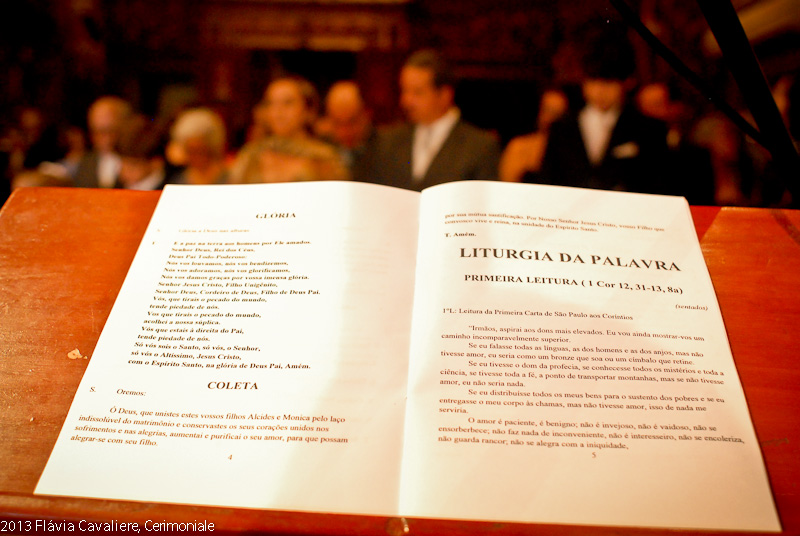 GLORIA
S. Glória a Deus nas alturas
E a paz na terra aos homens por Ele amados.
Senhor Deus, Rei dos Céus,
Deus Pai Todo Poderoso:
Nós vos louvamos, nós vos bendizemos,
Nós vos adoramos, nós vos glorificamos,
Nós vos damos graças por vossa imensa glória.
Senhor Jesus Cristo, Filho Unigênito,
Senhor Deus, Cordeiro de Deus, Filho de Deus Pai.
Vós, que tirais o pecado do mundo,
tende piedade de nós.
Vos que tirais o pecado do mundo,
acolhei a nossa súplica.
Vós que estais à direita do Pai,
tende piedade de nós.
Só vós sois o Santo, só vós, o Senhor,
só vós o Altíssimo, Jesus Cristo,
com o Espírito Santo, na glória de Deus Pai, Amém.
COLETA
S. Oremos:
Ó Deus, que unistes estes vossos filhos Alcides e Monica pelo laço
indissolúvel do matrimônio e conservastes os seus corações unidos nos
sofrimentos e nas alegrias, aumentai e purificai o seu amor, para que possam
alegrar-se com seu filho.
4
por sua mútua santificação. Por Nosso Senhor Jesus Cristo, vosso Filho que
convosco vive e reina, na unidade do Espírito Santo.
T. Amém.
LITURGIA DA PALAVRA
PRIMEIRA LEITURA ( 1 Cor 12, 31-13, 8a)
(sentados)
1ªL: Leitura da Primeira Carta de São Paulo aos Coríntios
"Irmãos, aspirai aos dons mais elevados. Eu vou ainda mostrar-vos um
caminho incomparavelmente superior.
Se eu falasse todas as línguas, as dos homens e as dos anjos, mas não
tivesse amor, eu seria como um bronze que soa ou um címbalo que retine.
Se eu tivesse o dom da profecia, se conhecesse todos os mistérios e toda a
ciência, se tivesse toda a fé, a ponto de transportar montanhas, mas se não tivesse
amor, eu não seria nada.
Se eu distribuísse todos os meus bens para o sustento dos pobres e se eu
entregasse o meu corpo às chamas, mas não tivesse amor, isso de nada me
serviria.
O amor é paciente, é benigno; não é invejoso, não é vaidoso, não se
ensorberbece; não faz nada de inconveniente, não é interesseiro, não se encoleriza,
não guarda rancor; não se alegra com a iniquidade,
5
2013 Flávia Cavaliere, Cerimoniale